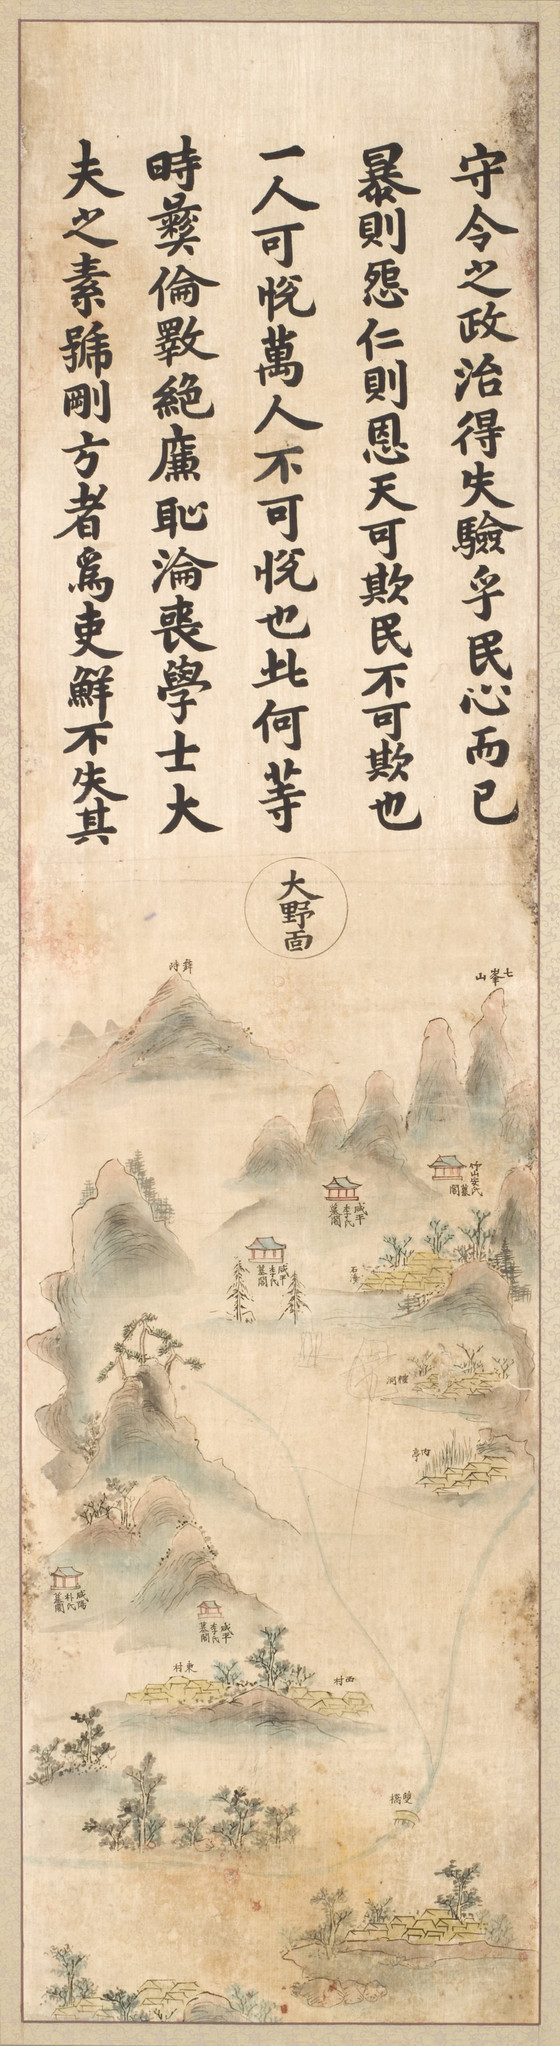 守令之政治得失驗乎民心而已
暴則怨仁則恩天可欺民不可欺也
一人可悅萬人不可悅也此何等
時彝倫斁絶廉恥淪喪學士大
夫之素號剛方者爲吏鮮不失其
大野面
七峯山
竹山安氏墓閣
咸平李氏墓閣
咸平李氏墓閣
內亭
咸陽朴氏墓閣
咸平李氏墓閣
東村
西村
雙橋